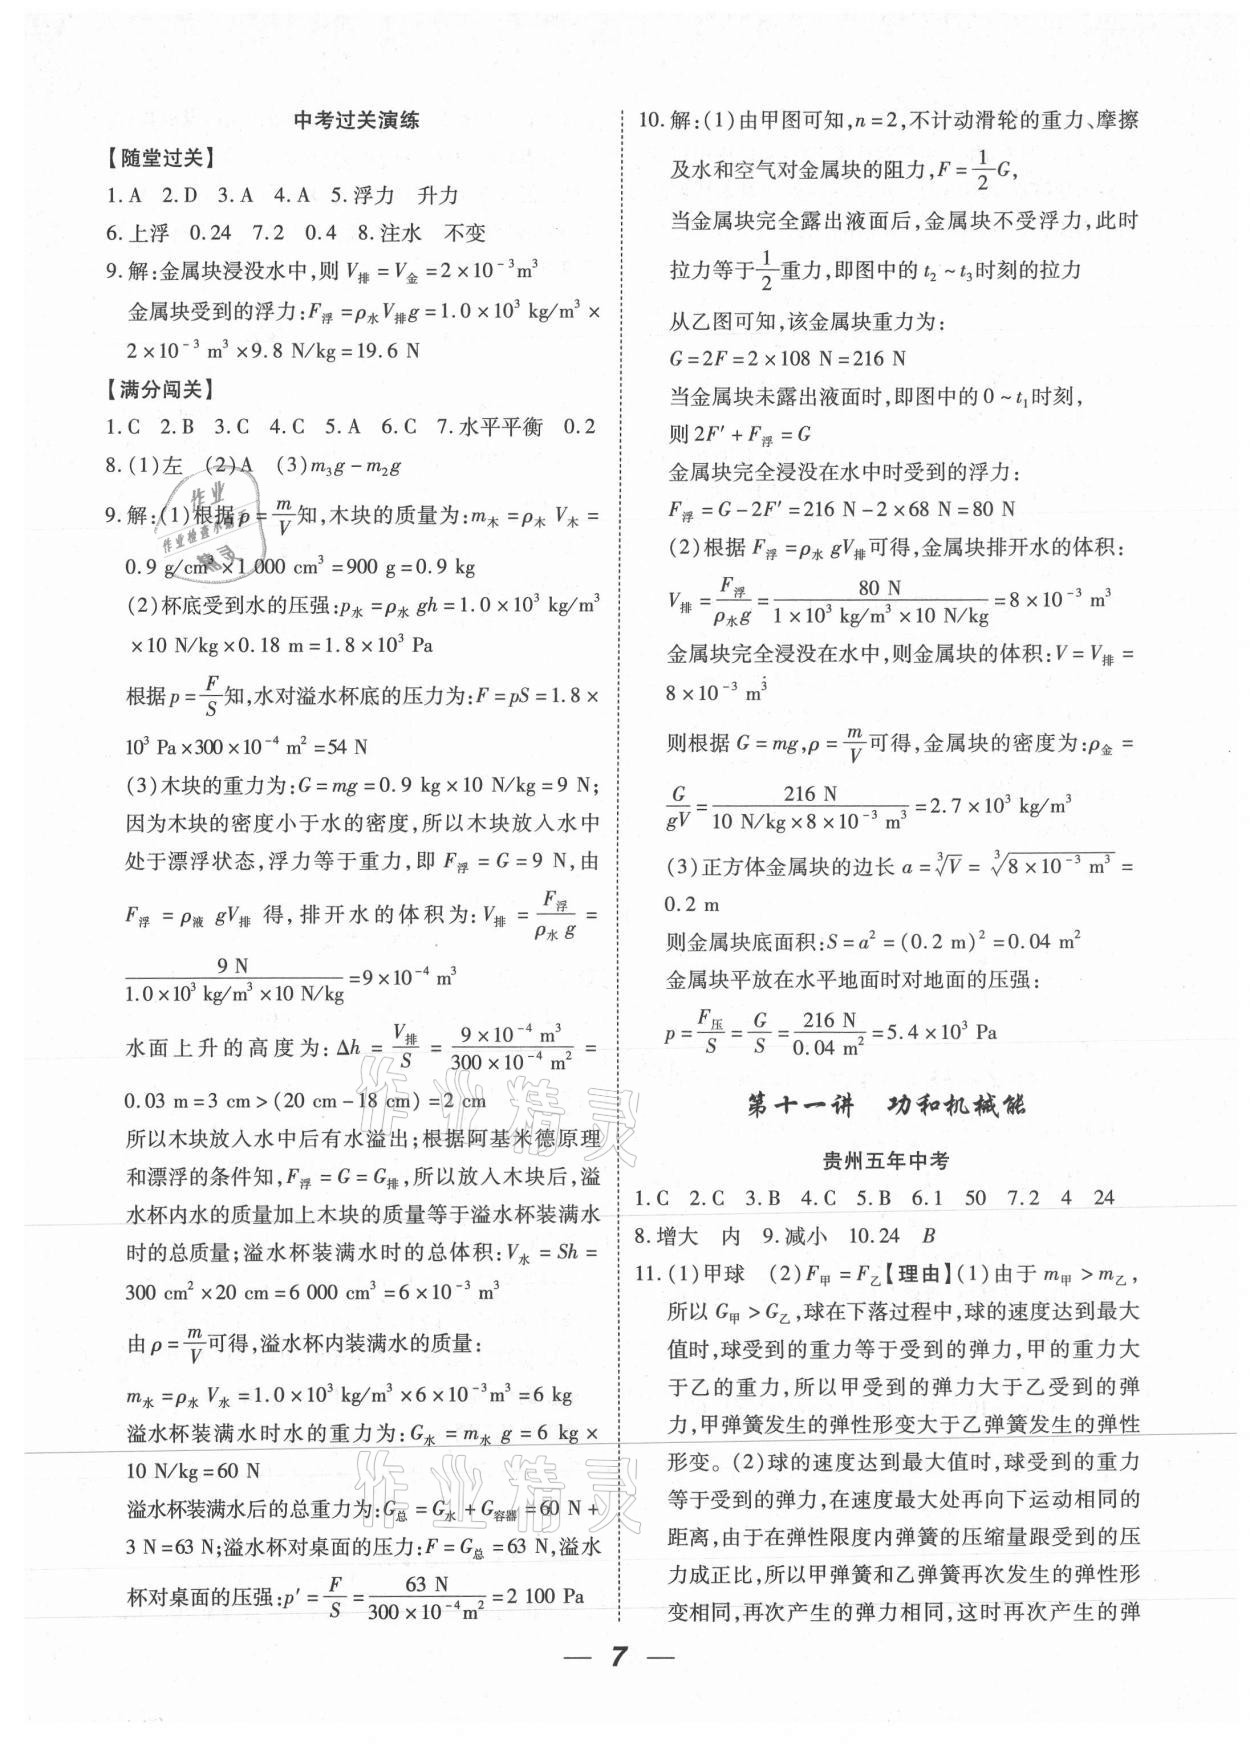 中考过关演练
【随堂过关】
1. A 2. D 3. A 4. A 5. 浮力 升力
6. 上浮 0.24 7.2 0.4 8. 注水 不变
9. 解:金属块浸没水中,则 V排 = V金 = 2×10⁻³m³
金属块受到的浮力:F浮 = ρ水V排g = 1.0×10³ kg/m³ ×
2×10⁻³ m³ ×9.8 N/kg = 19.6 N
【满分闯关】
1. C 2. B 3. C 4. C 5. A 6. C 7. 水平平衡 0.2
8. (1)左 (2)A (3)m₃g − m₂g
9. 解:(1)根据ρ = m/V 知,木块的质量为:m木 = ρ木 V木 =
0.9 g/cm³ ×1 000 cm³ = 900 g = 0.9 kg
(2)杯底受到水的压强:p水 = ρ水 gh = 1.0×10³ kg/m³
×10 N/kg×0.18 m = 1.8×10³ Pa
根据p = F/S 知,水对溢水杯底的压力为:F = pS = 1.8×
10³ Pa×300×10⁻⁴ m² = 54 N
(3)木块的重力为:G = mg = 0.9 kg×10 N/kg = 9 N;
因为木块的密度小于水的密度,所以木块放入水中
处于漂浮状态,浮力等于重力,即 F浮 = G = 9 N,由
F浮 = ρ液 gV排 得,排开水的体积为:V排 = F浮/ρ水 g =
9 N/1.0×10³ kg/m³ ×10 N/kg = 9×10⁻⁴ m³
水面上升的高度为:Δh = V排/S = 9×10⁻⁴ m³/300×10⁻⁴ m² =
0.03 m = 3 cm > (20 cm − 18 cm) = 2 cm
所以木块放入水中后有水溢出;根据阿基米德原理
和漂浮的条件知,F浮 = G = G排,所以放入木块后,溢
水杯内水的质量加上木块的质量等于溢水杯装满水
时的总质量;溢水杯装满水时的总体积:V水 = Sh =
300 cm² ×20 cm = 6 000 cm³ = 6×10⁻³ m³
由ρ = m/V 可得,溢水杯内装满水的质量:
m水 = ρ水 V水 = 1.0×10³ kg/m³ ×6×10⁻³m³ = 6 kg
溢水杯装满水时水的重力为:G水 = m水 g = 6 kg×
10 N/kg = 60 N
溢水杯装满水后的总重力为:G总 = G水 + G容器 = 60 N +
3 N = 63 N;溢水杯对桌面的压力:F = G总 = 63 N,溢水
杯对桌面的压强:p′ = F/S = 63 N/300×10⁻⁴m² = 2 100 Pa
10. 解:(1)由甲图可知,n = 2,不计动滑轮的重力、摩擦
及水和空气对金属块的阻力,F = 1/2 G,
当金属块完全露出液面后,金属块不受浮力,此时
拉力等于 1/2 重力,即图中的 t₂ ~ t₃时刻的拉力
从乙图可知,该金属块重力为:
G = 2F = 2×108 N = 216 N
当金属块未露出液面时,即图中的 0 ~ t₁时刻,
则 2F′ + F浮 = G
金属块完全浸没在水中时受到的浮力:
F浮 = G − 2F′ = 216 N − 2×68 N = 80 N
(2)根据 F浮 = ρ水 gV排可得,金属块排开水的体积:
V排 = F浮/ρ水g = 80 N/1×10³ kg/m³ ×10 N/kg = 8×10⁻³ m³
金属块完全浸没在水中,则金属块的体积:V = V排 =
8×10⁻³ m³
则根据 G = mg,ρ = m/V 可得,金属块的密度为:ρ金 =
G/gV = 216 N/10 N/kg×8×10⁻³ m³ = 2.7×10³ kg/m³
(3)正方体金属块的边长 a = ∛V = ∛(8×10⁻³ m³) =
0.2 m
则金属块底面积:S = a² = (0.2 m)² = 0.04 m²
金属块平放在水平地面时对地面的压强:
p = F压/S = G/S = 216 N/0.04 m² = 5.4×10³ Pa
第十一讲 功和机械能
贵州五年中考
1. C 2. C 3. B 4. C 5. B 6. 1 50 7. 2 4 24
8. 增大 内 9. 减小 10. 24 B
11. (1)甲球 (2)F甲 = F乙【理由】(1)由于 m甲 > m乙,
所以 G甲 > G乙,球在下落过程中,球的速度达到最大
值时,球受到的重力等于受到的弹力,甲的重力大
于乙的重力,所以甲受到的弹力大于乙受到的弹
力,甲弹簧发生的弹性形变大于乙弹簧发生的弹性
形变。(2)球的速度达到最大值时,球受到的重力
等于受到的弹力,在速度最大处再向下运动相同的
距离,由于在弹性限度内弹簧的压缩量跟受到的压
力成正比,所以甲弹簧和乙弹簧再次发生的弹性形
变相同,再次产生的弹力相同,这时再次产生的弹
— 7 —
作业
作业检查小助手
精灵
作业精灵
作业精灵